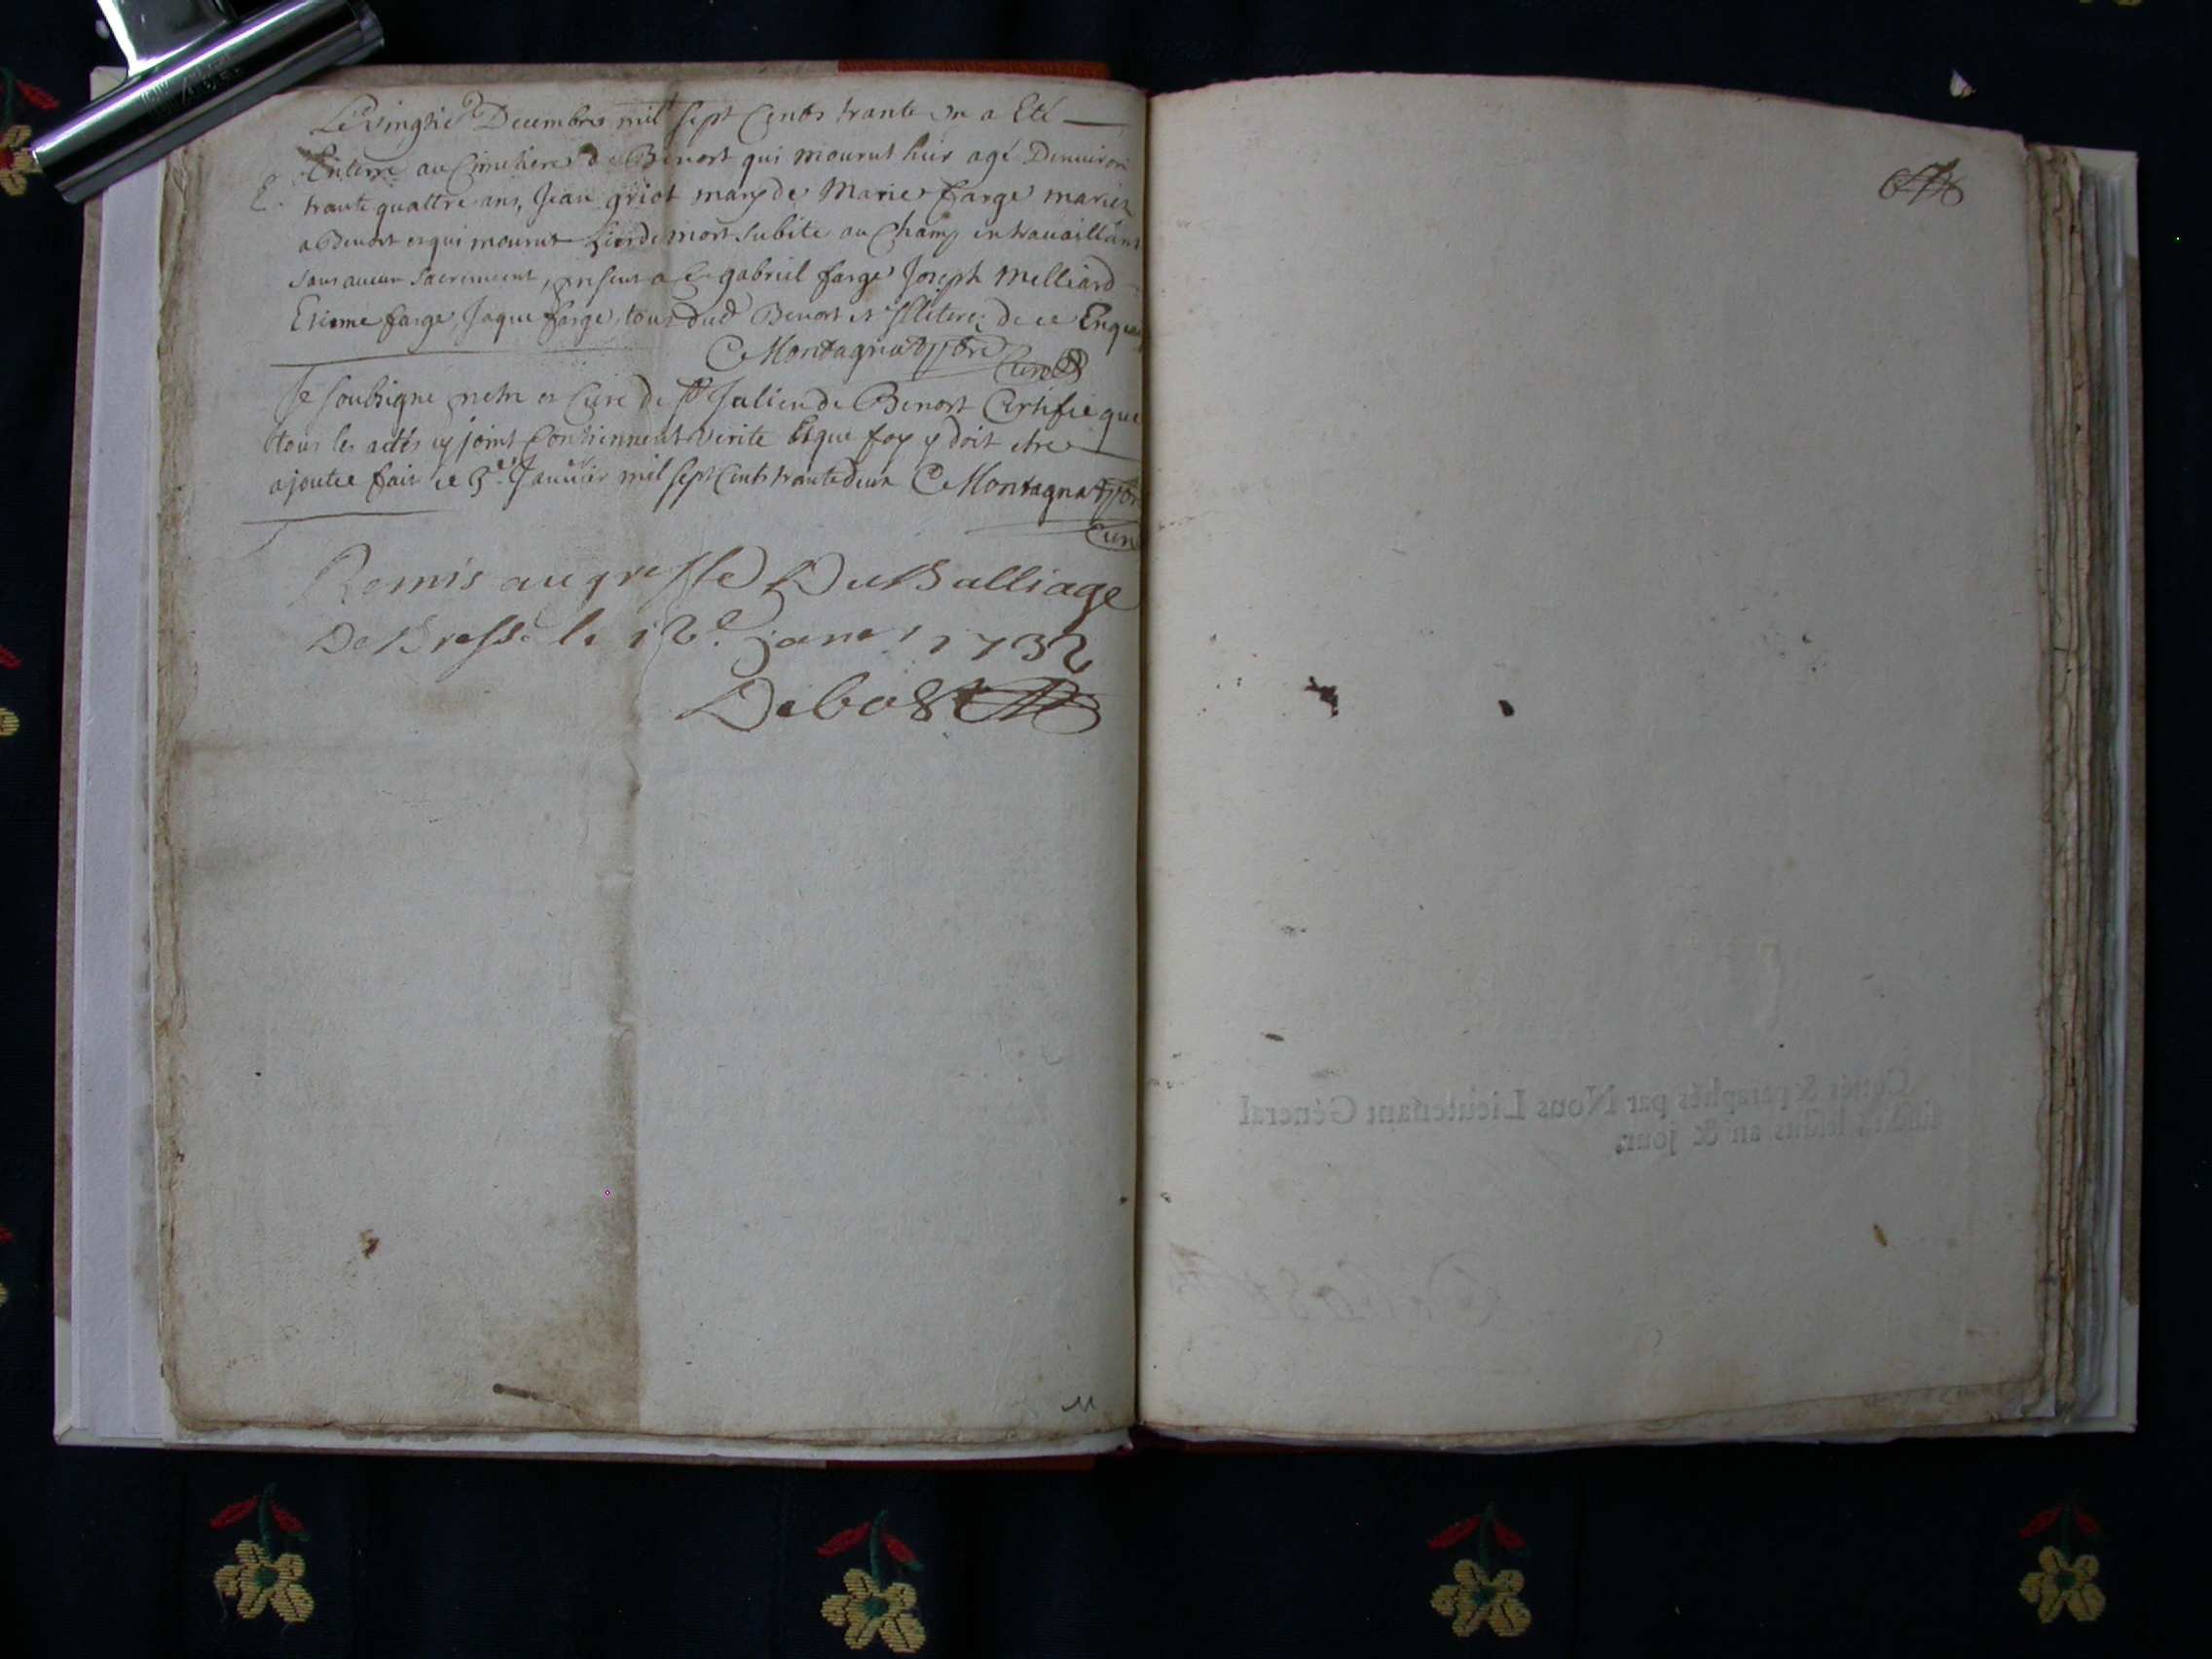 Le vingtie Decembre mil sept Cents trante un a Eté
Enterre au Cimetiere de Benort qui mourut hier agé Denuiron
E.
trante quattre ans, Jean griot mary de Marie farge mariez
a Benort et qui mourut hier de mort subite au Champ en trauaillant
sans aucun sacrement, presens a Ce gabriel farge Joseph Melliard
Etienne farge, Jaque farge, tous dud Benort et Illiterez de ce Enquis
C Montagnat ptre
Curé
Je soubsigne pretre et Curé de St Julien de Benort Certifie que
tous les actes cy joint Contiennent verite Et que foy y doit etre
ajoutée fait ce 5e Januier mil sept Cents trante deux C Montagnat ptre
Curé
Remis au greffe Du Balliage
De Bresse le 12e janer 1732
Debost
11
Cottés & paraphés par Nous Lieutenant Général
lesdits an & jour.
Debost